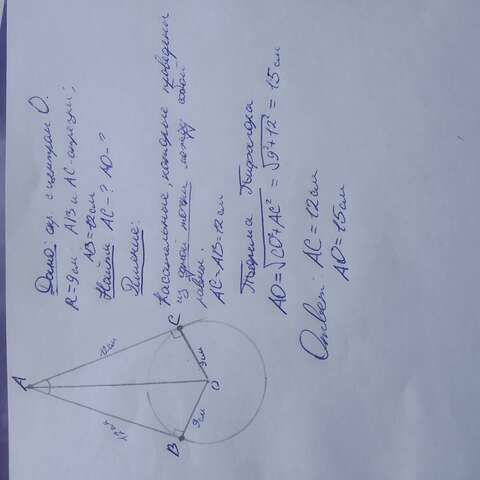 Дано: окр. с центром О.
R=9см AB и AC - отрезки,
AB=12см
Найти AC-? AO-?
Решение:
Касательные, которые проведены
из одной точки между собой
равны.
AC=AB=12см
Теорема Пифагора
AO=√CO²+AC² = √9²+12² = 15см
Ответ: AC=12см
AO=15см
A
12см
B
C
9см
9см
O